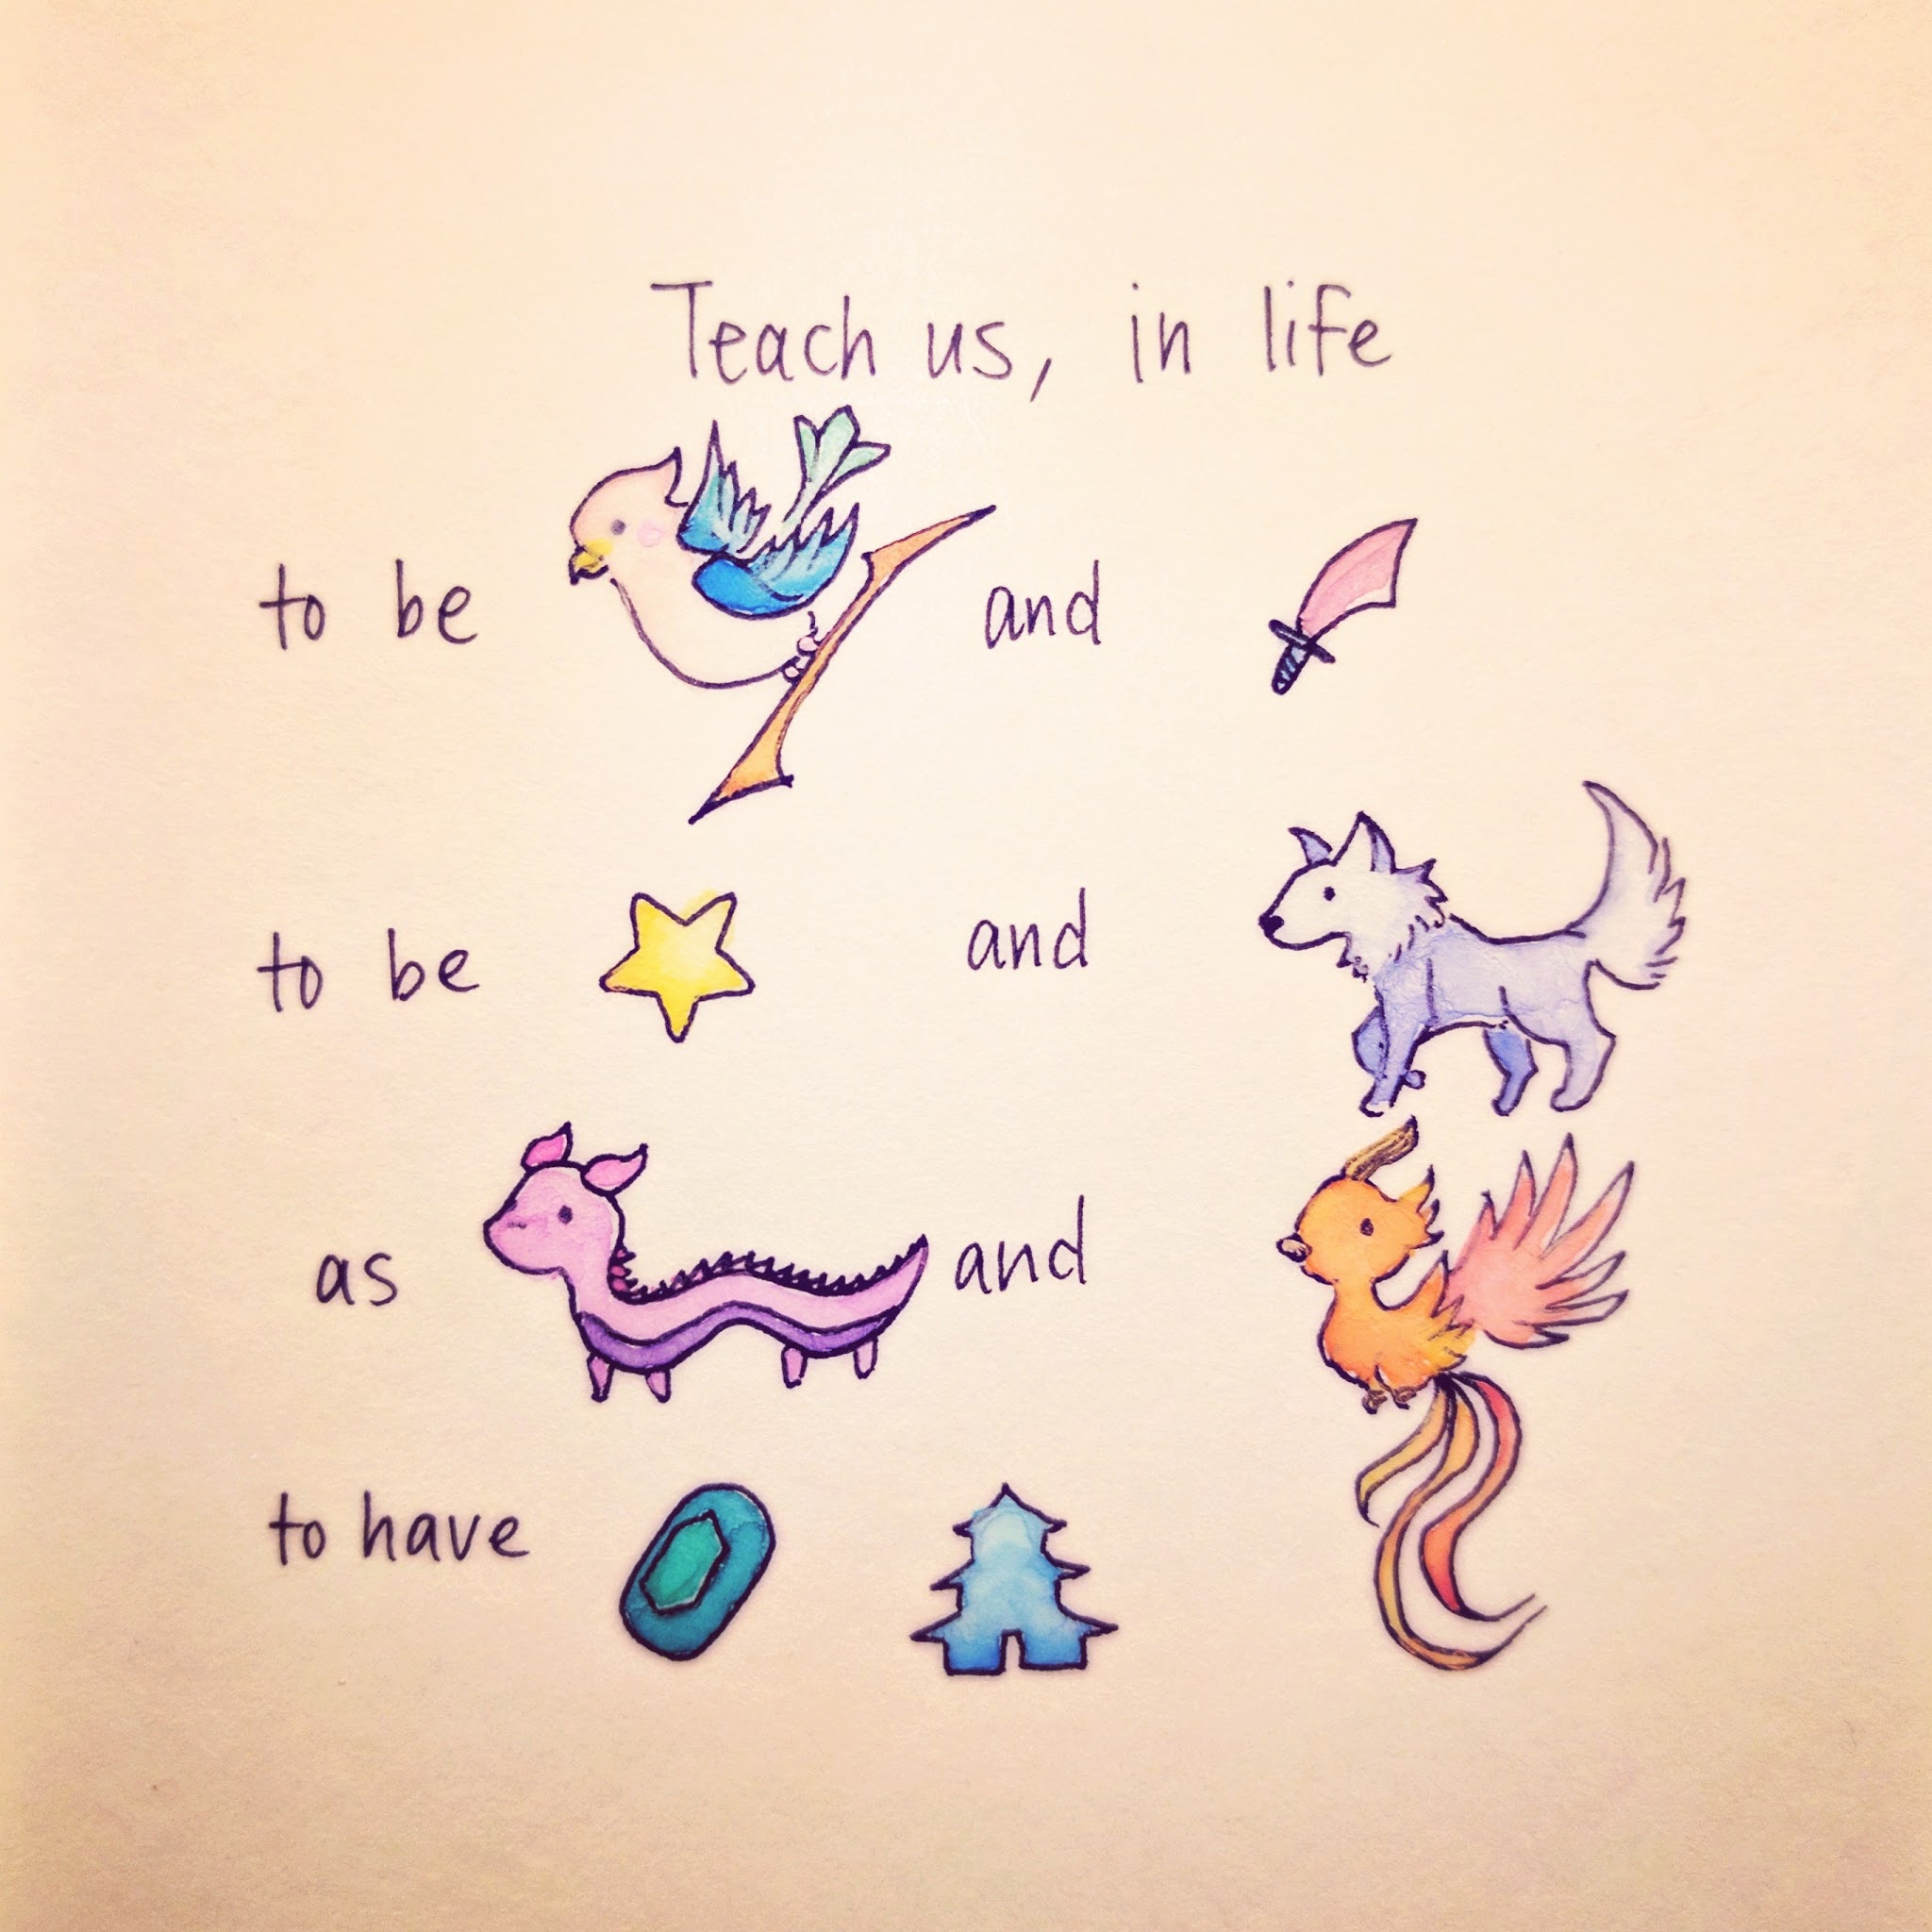 Teach us, in life
to be and
to be and
as and
to have